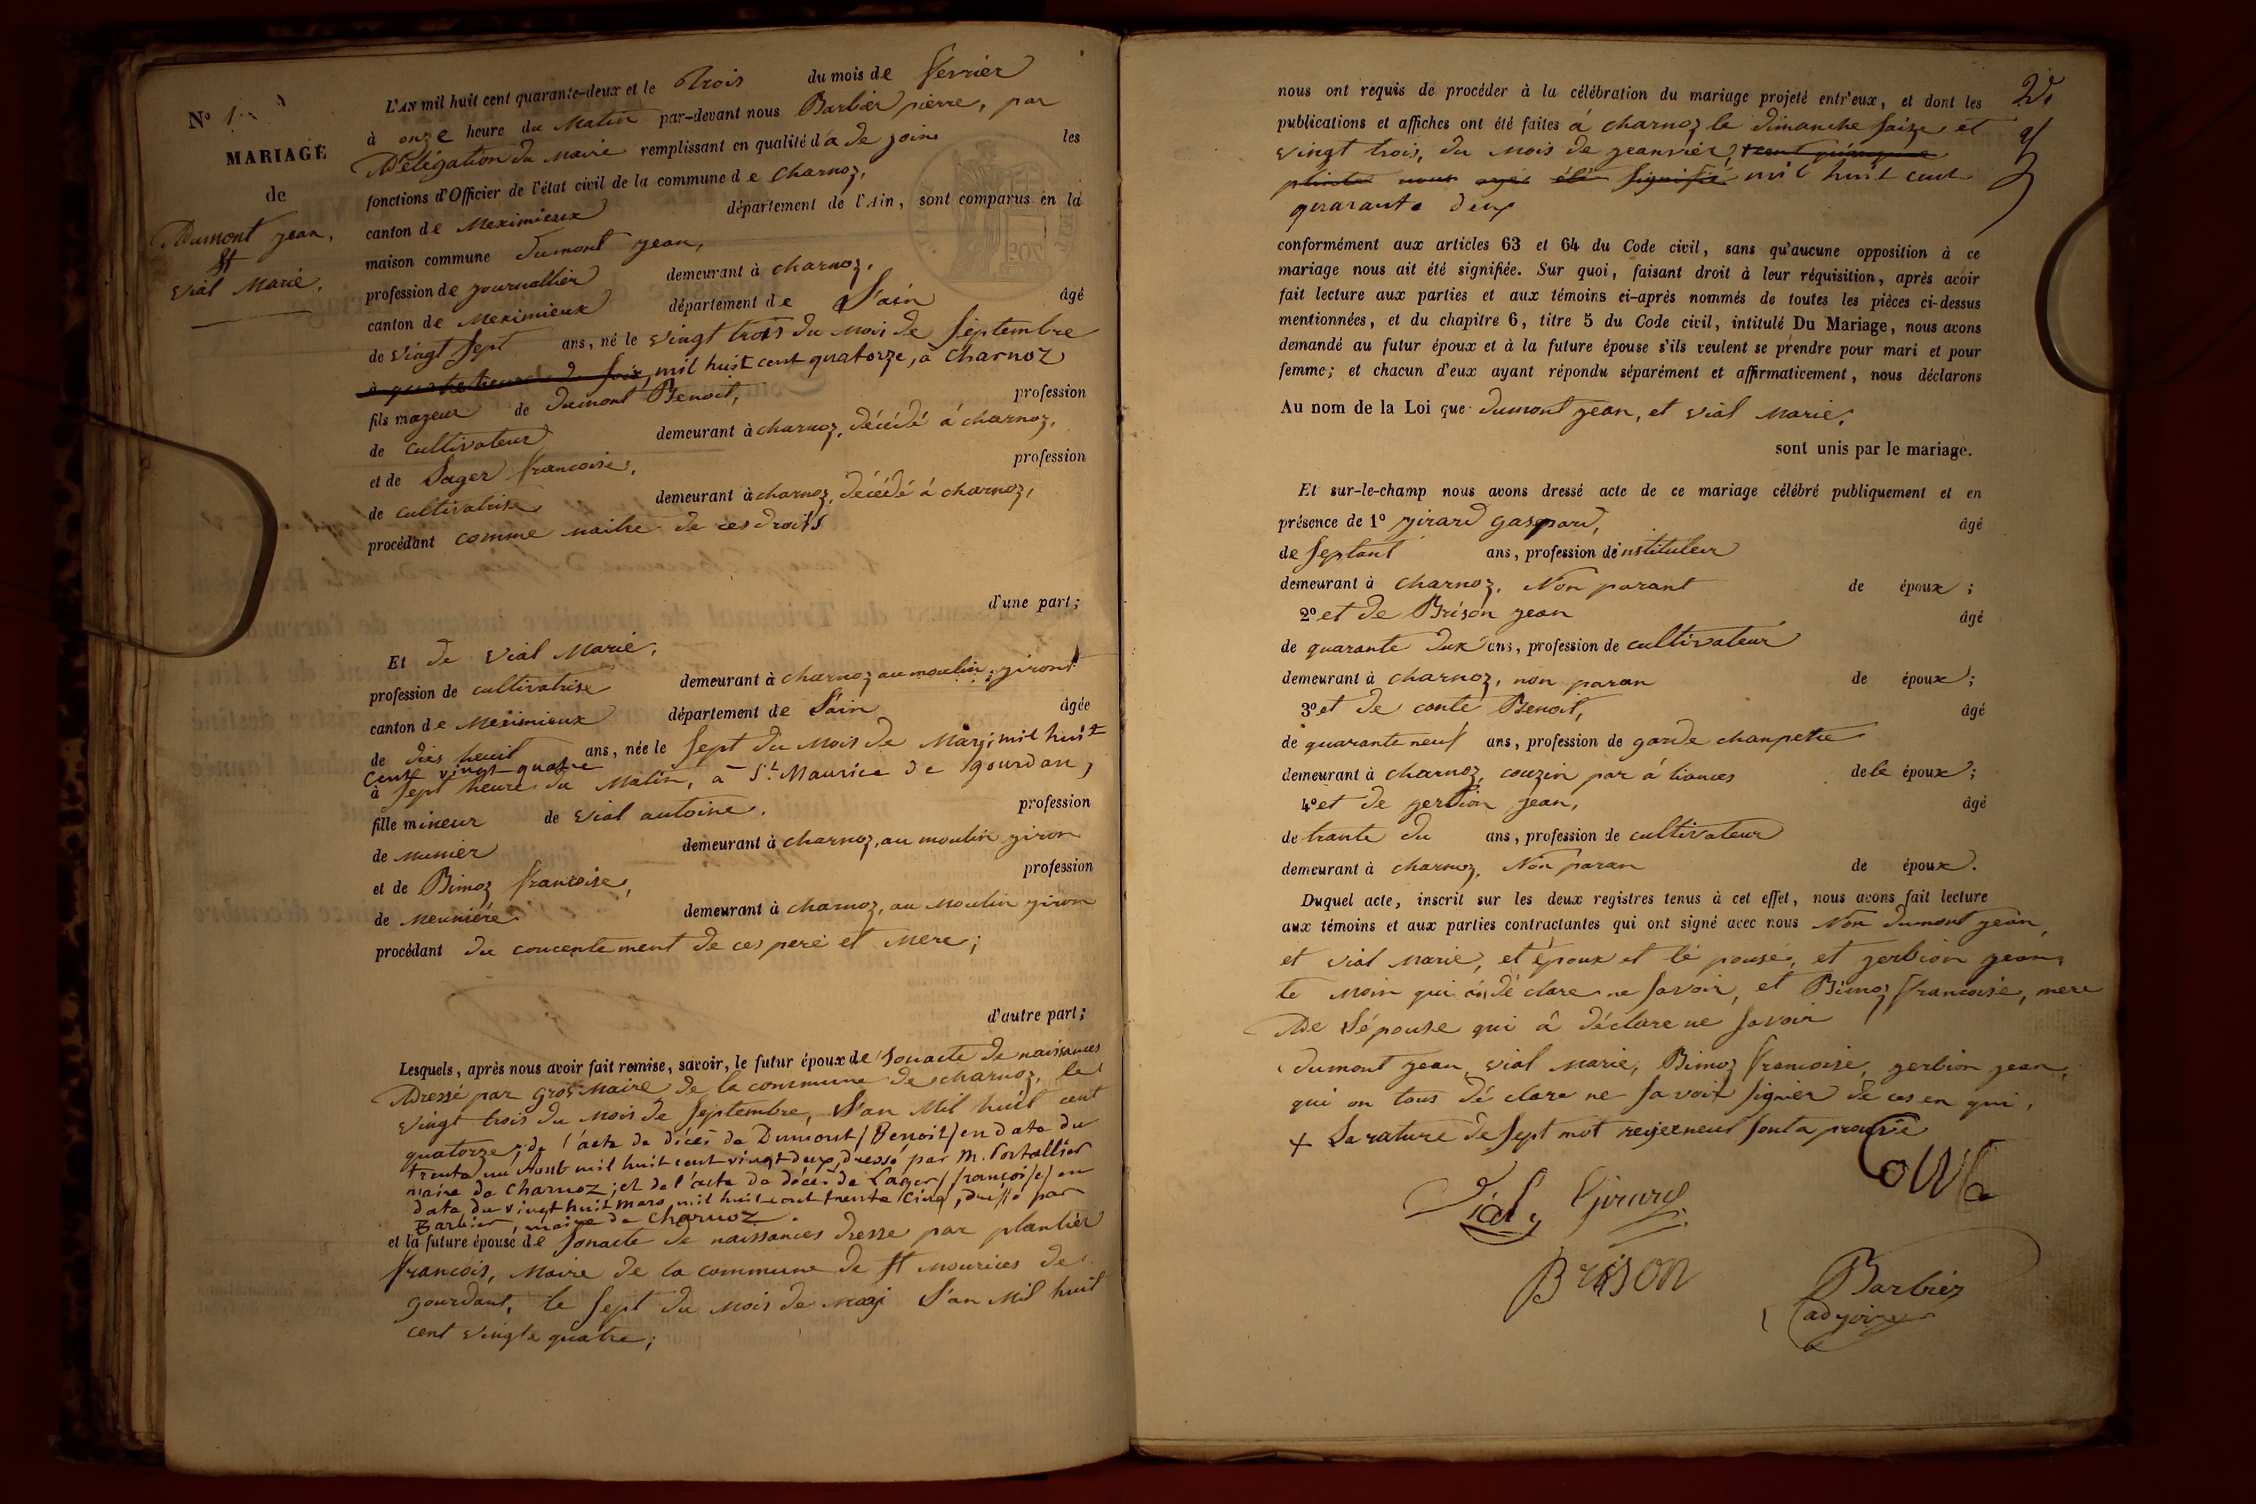 N° 1
MARIAGE
de
Dumont jean,
et
vial Marie.
L'AN mil huit cent quarante-deux et le Trois du mois de fevrier
à onze heure du Matin par-devant nous Barbier pierre, par
Délégation du Maire remplissant en qualité d'a de joins les
fonctions d'Officier de l'état civil de la commune de Charnoz,
canton de Meximieux département de l'Ain, sont comparus en la
maison commune Dumont jean,
profession de journallier demeurant à charnoz,
canton de Meximieux département de L'ain âgé
de vingt sept ans, né le vingt trois du mois de septembre
à quatre heure du soir, mil huit cent quatorze, à Charnoz
fils mazeur de dumont Benoit, profession
de cultivateur demeurant à charnoz, décédé á charnoz,
et de Lager francoise, profession
de cultivatrise demeurant à charnoz, décédé á charnoz,
procédant comme maitre de ces droits
d'une part;
Et de vial Marie,
profession de cultivatrise demeurant à charnoz au moulin giront
canton de Meximieux département de Lain âgée
de dies heuit ans, née le sept du mois de Marj; mil huit
cent vingt quatre
à sept heure du Matin, à St Maurice de gourdan,
fille mineur de vial antoine, profession
de munier demeurant à charnoz, au moulin giron
et de Bimoz francoise, profession
de meuniére demeurant à charnoz, au Moulin giron
procédant du concentement de ces pere et Mere;
d'autre part;
Lesquels, après nous avoir fait remise, savoir, le futur époux de sonacte de naissances
Adressé par gros Maire de la commune de charnoz, le
vingt trois du mois de septembre, L'an Mil huit cent
quatorze; de l'acte de décès de Dumont (Benoit) en date du
trente un Aout mil huit cent vingt deux, dressé par M. Portallier
maire de Charnoz; et de l'acte de décès de Lager (françoise) en
date du vingt huit mars mil huit cent trente cinq, dressé par
Barbier, maire de Charnoz.
et la future épouse de sonacte de naissances dresse par plantier
francois, Maire de la commune de St Mourices de
gourdant, le sept du mois de marj L'an Mil huit
cent vingte quatre;
2e
nous ont requis de procéder à la célébration du mariage projeté entr'eux, et dont les
publications et affiches ont été faites á charnoz le dimanche saize et
vingt trois, du mois de jeanvier,
nous ayei été signifié mil huit cent
quarante deux
conformément aux articles 63 et 64 du Code civil, sans qu'aucune opposition à ce
mariage nous ait été signifiée. Sur quoi, faisant droit à leur réquisition, après avoir
fait lecture aux parties et aux témoins ci-après nommés de toutes les pièces ci-dessus
mentionnées, et du chapitre 6, titre 5 du Code civil, intitulé Du Mariage, nous avons
demandé au futur époux et à la future épouse s'ils veulent se prendre pour mari et pour
femme; et chacun d'eux ayant répondu séparément et affirmativement, nous déclarons
Au nom de la Loi que dumont jean, et vial Marie,
sont unis par le mariage.
Et sur-le-champ nous avons dressé acte de ce mariage célébré publiquement et en
présence de 1° girard gaspard, âgé
de septant ans, profession de instituteur
demeurant à charnoz, Non parant de époux;
2° et de Brison jean âgé
de quarante dux ans, profession de cultivateur
demeurant à charnoz, non paran de époux;
3° et de conte Benoit, âgé
de quarante neuf ans, profession de garde chanpetre
demeurant à charnoz, couzin par á liances de le époux;
4° et de gerbion jean, âgé
de trante du ans, profession de cultivateur
demeurant à charnoz, Non paran de époux.
Duquel acte, inscrit sur les deux registres tenus à cet effet, nous avons fait lecture
aux témoins et aux parties contractantes qui ont signé avec nous Non dumont jean,
et vial Marie, et époux et lé pouse, et gerbion jean,
te moin qui on dé clare ne savoir, et Bimoz francoise, mere
De Lépouse qui á déclare ne savoir
dumont jean, vial Marie, Bimoz francoise, gerbion jean,
qui on tous dé clare ne savoir signer de ces en qui,
+ La rature de sept mot rejeeneus sont a prouvé
Vial Girard Conte
Brison
Barbier
adjoint